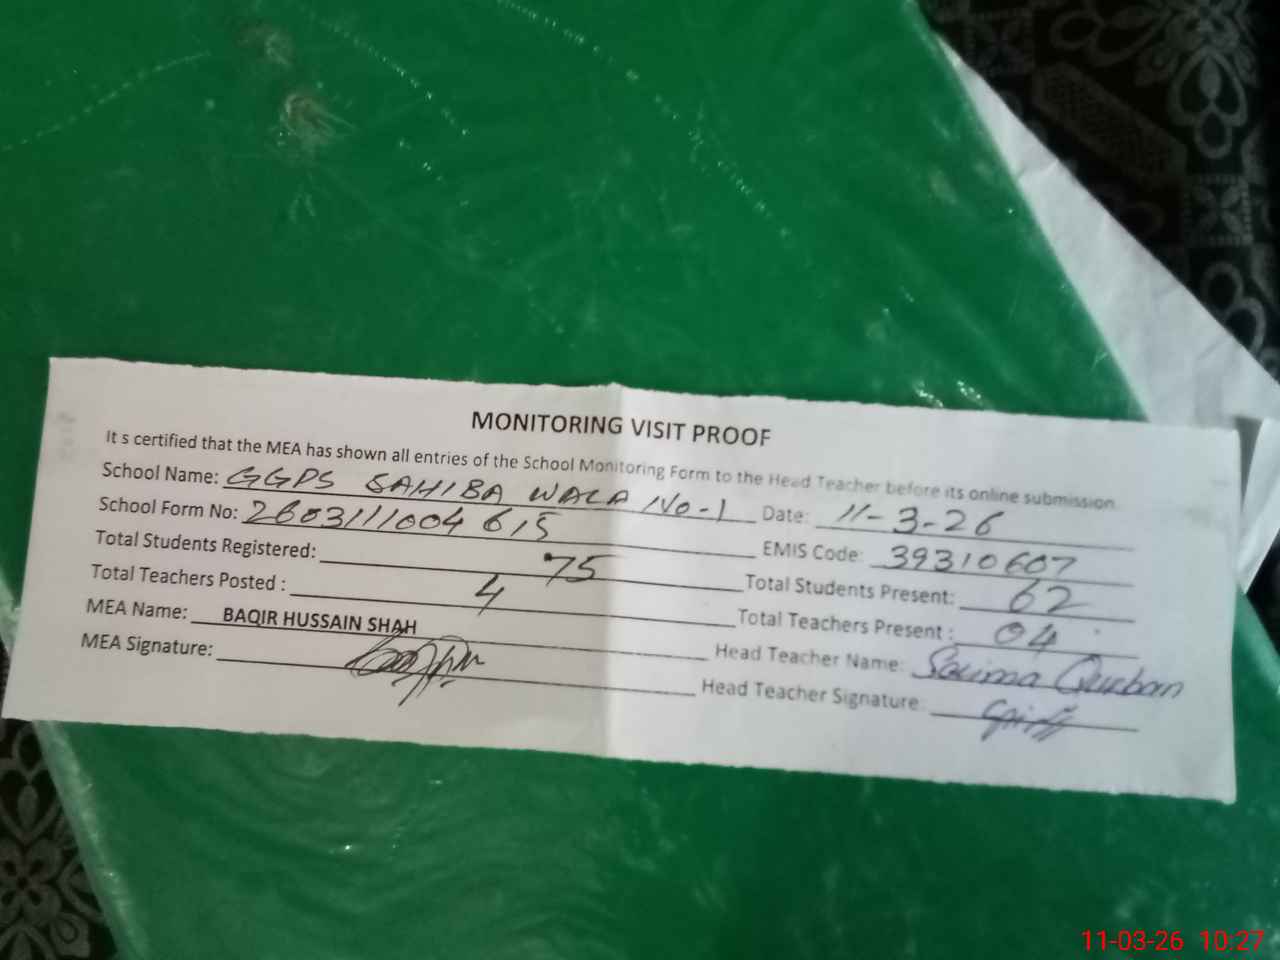 MONITORING VISIT PROOF
It s certified that the MEA has shown all entries of the School Monitoring Form to the Head Teacher before its online submission.
School Name: GGPS SAHIBA WALA No-1 Date: 11-3-26
School Form No: 2603111004615 EMIS Code: 39310607
Total Students Registered: 75 Total Students Present: 62
Total Teachers Posted : 4 Total Teachers Present : 04
MEA Name: BAQIR HUSSAIN SHAH Head Teacher Name: Saima Qurban
MEA Signature: Head Teacher Signature:
11-03-26 10:27